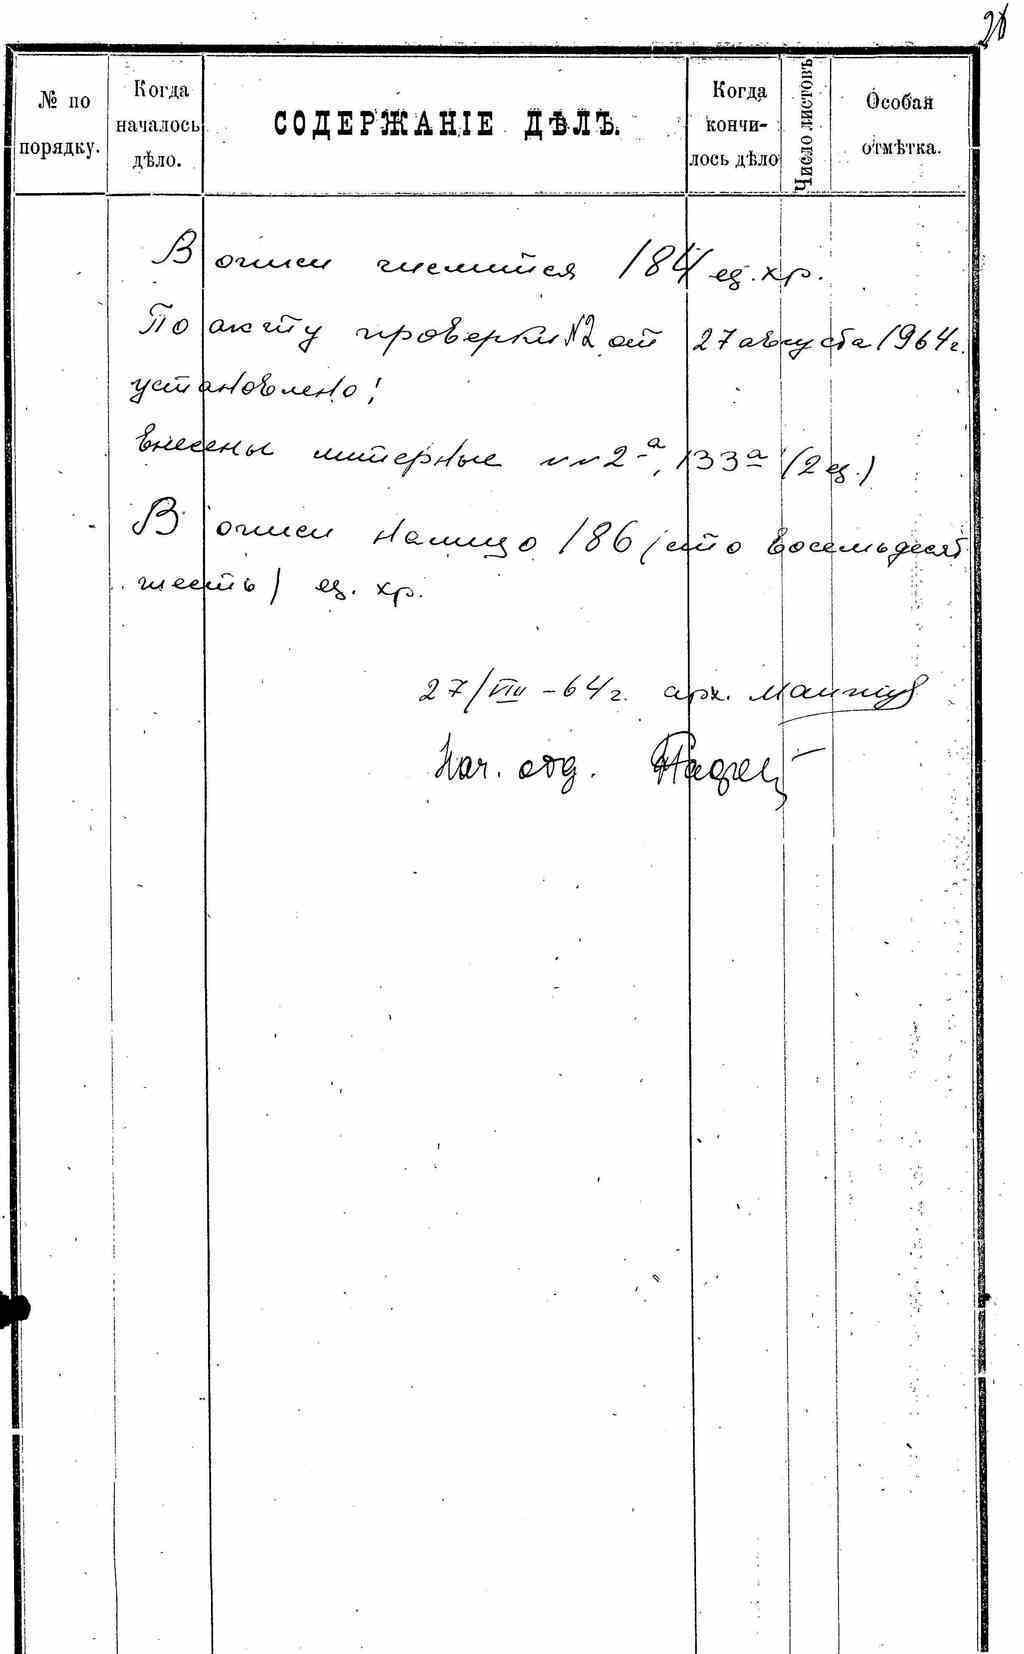 № по порядку.
Когда началось дѣло.
СОДЕРЖАНІЕ ДѢЛЪ.
Когда кончилось дѣло
Число листовъ
Особая отмѣтка.
В описи числится 184 ед. хр.
По акту проверки №2 от 27 августа 1964 г.
установлено:
внесены литерные №№ 2а, 133а (2 ед.)
В описи налицо 186 (сто восемьдесят
шесть) ед. хр.
27/VIII - 64 г. арх.
Нач. отд.